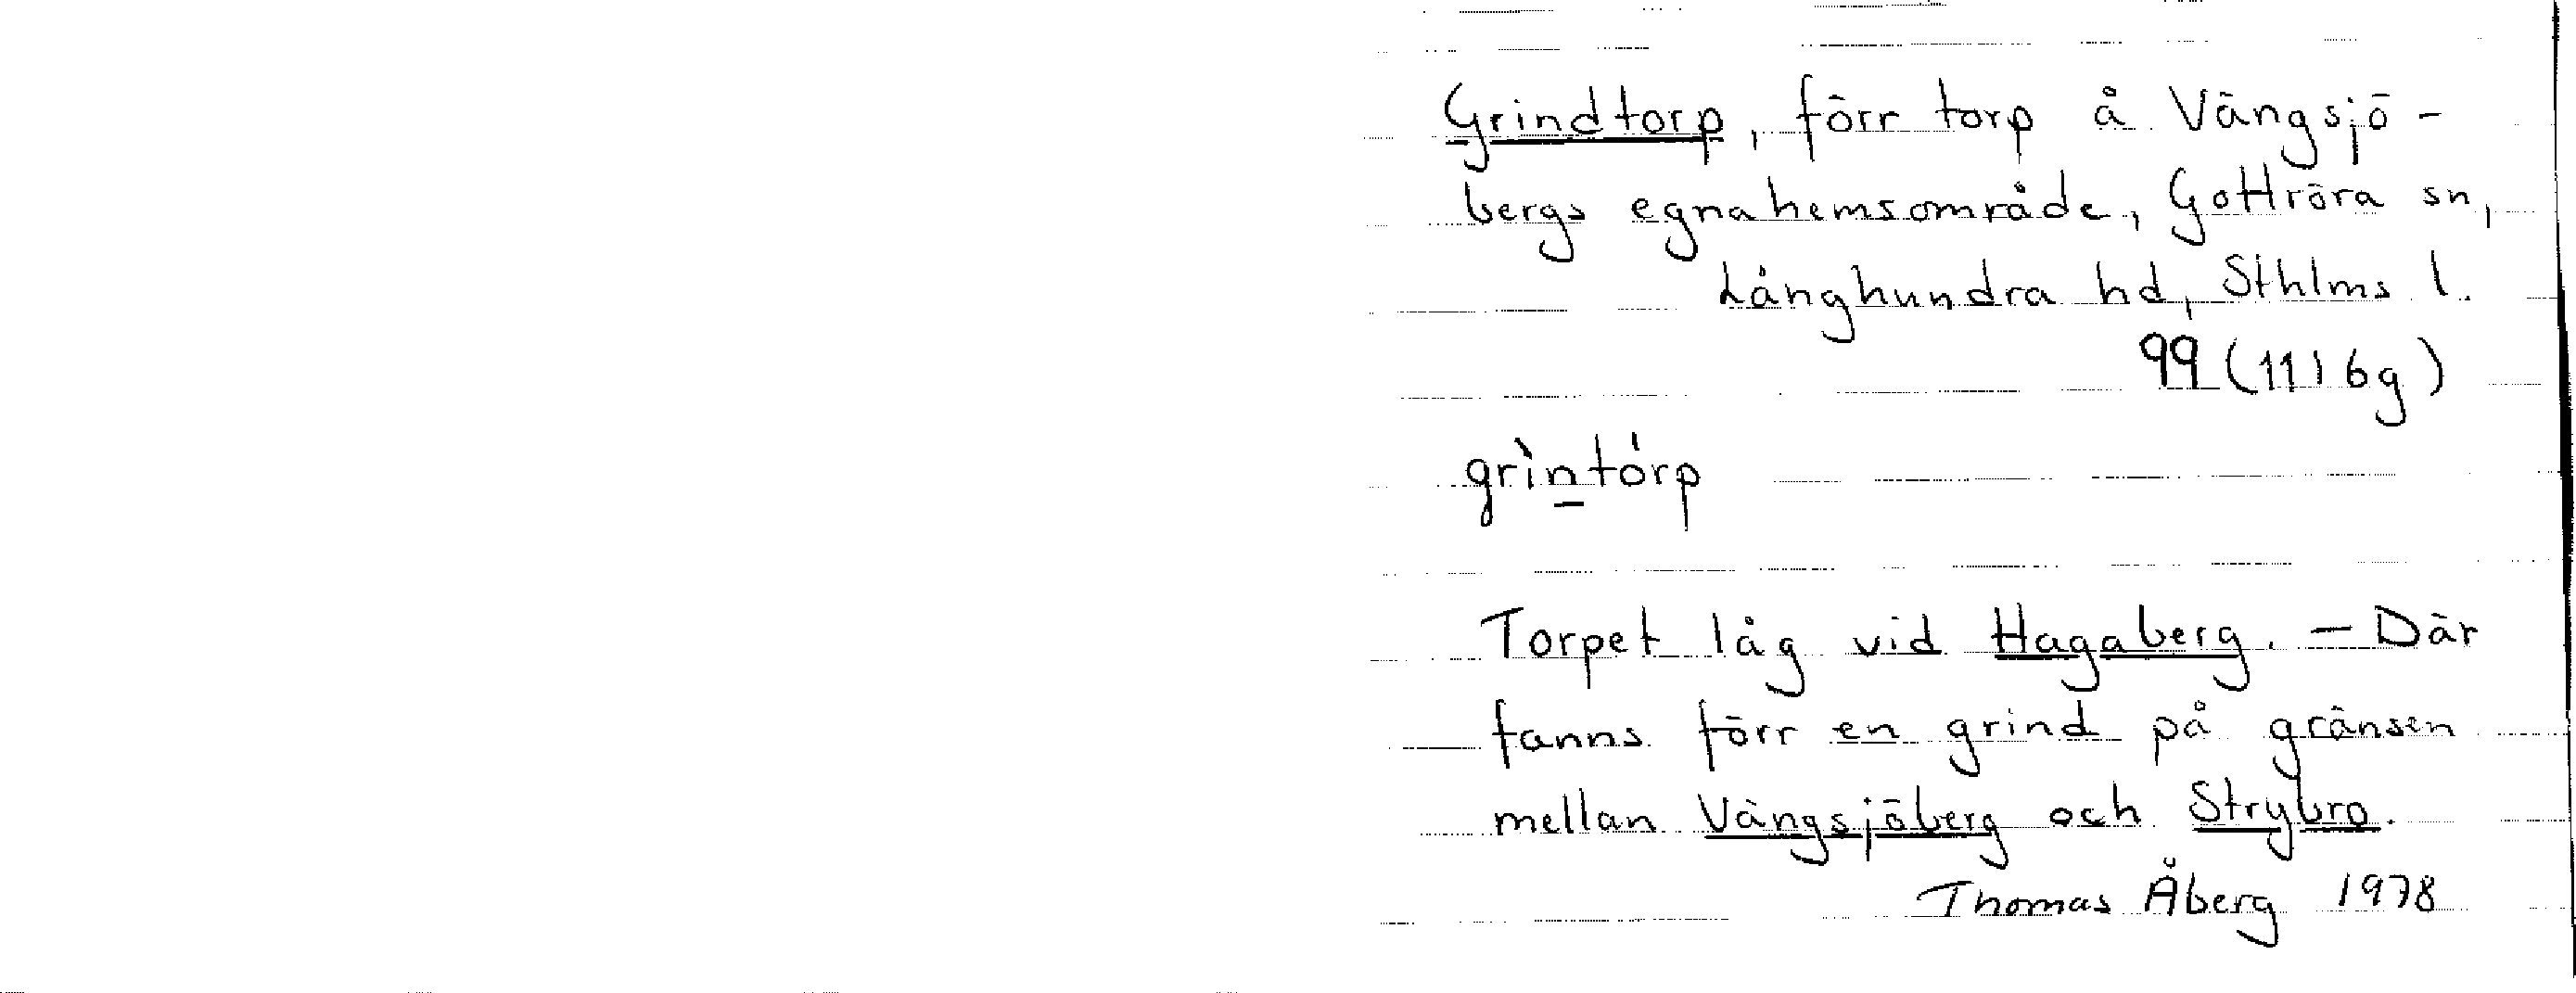 Grindtorp, förr torp å Vängsjö-
bergs egnahemsområde, Gottröra sn,
Långhundra hd, Sthlms l.
99 (11I6g)
grìntórp
Torpet låg vid Hagaberg. – Där
fanns förr en grind på gränsen
mellan Vängsjöberg och Strybro.
Thomas Åberg 1978